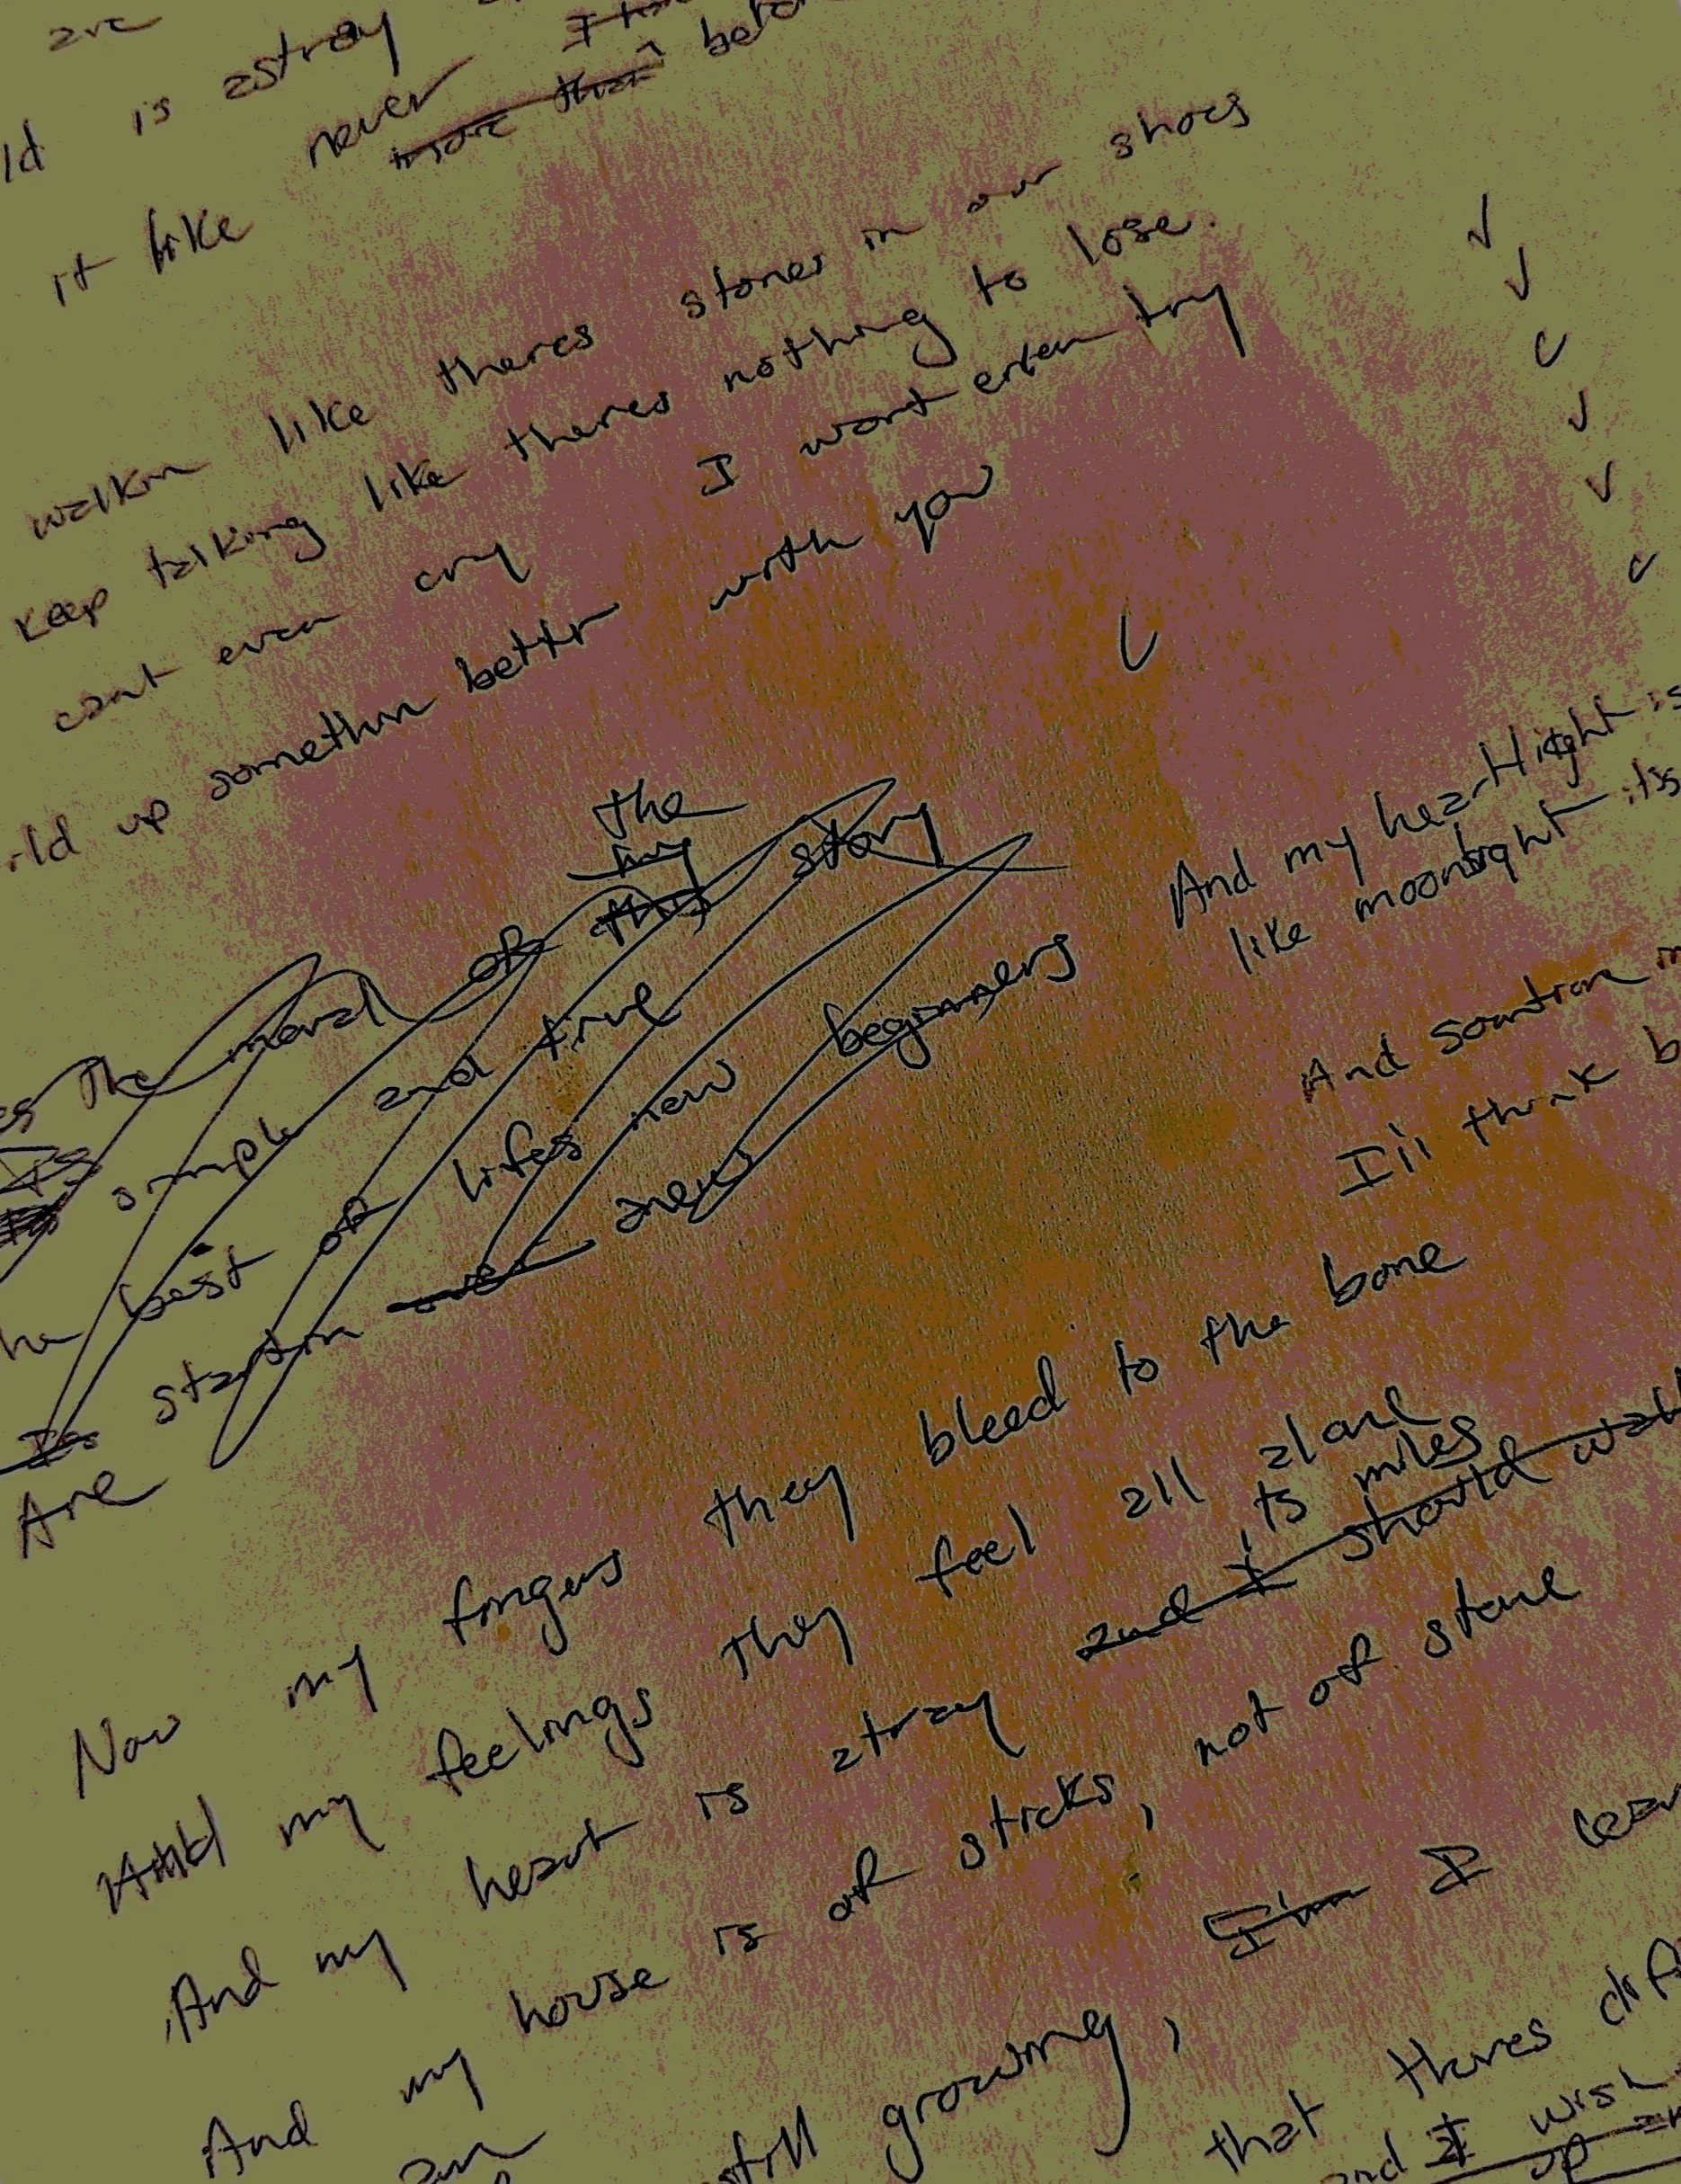 are
ld is astray
it like never more than
walkin like theres stones in our shoes
keep talking like theres nothing to lose.
cant even cry I wont even try
ild up somethin bettr with you
the
my
The moral of this story
simple and true
he best of lifes new beginners
Is
Are startin anew
And my heartlight is
like moonlight its
And somtim
I'll think b
Now my fingers they bleed to the bone
And my feelings they feel all alone
its miles
And my heart is atray and I should wal
And my house is of sticks, not of stone
am still growing, I'm I lear
that theres diff
and I wish
up